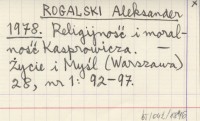 ROGALSKI Aleksander
1978. Religijność i moral-
ność Kasprowicza. —
Życie i Myśl (Warszawa)
28, nr 1: 92-97.